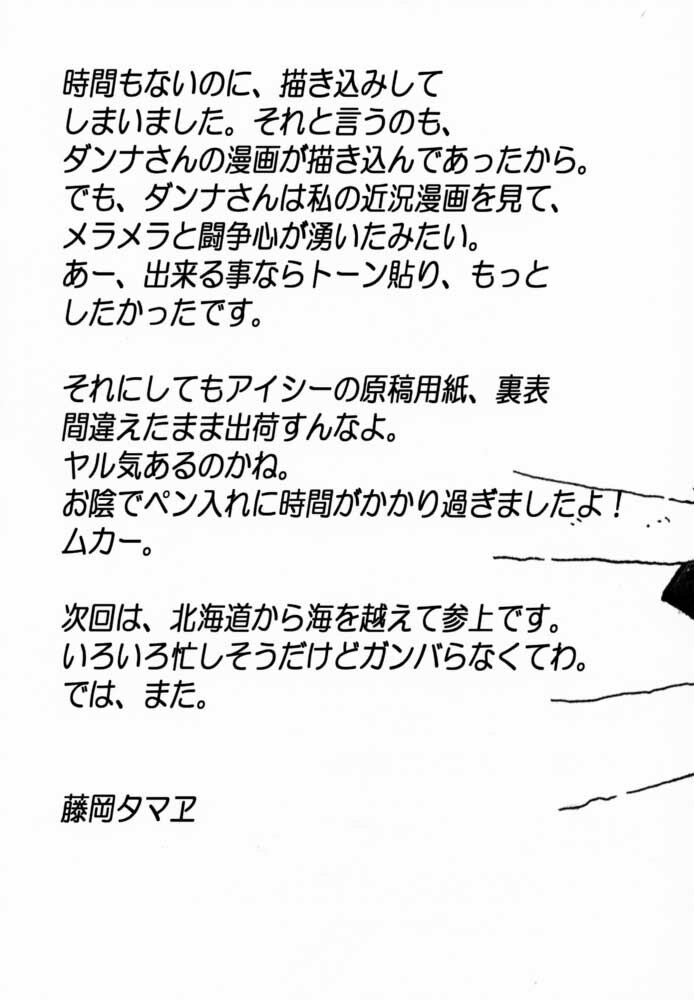 時間もないのに、描き込みして
しまいました。それと言うのも、
ダンナさんの漫画が描き込んであったから。
でも、ダンナさんは私の近況漫画を見て、
メラメラと闘争心が湧いたみたい。
あー、出来る事ならトーン貼り、もっと
したかったです。
それにしてもアイシーの原稿用紙、裏表
間違えたまま出荷すんなよ。
ヤル気あるのかね。
お陰でペン入れに時間がかかり過ぎましたよ！
ムカー。
次回は、北海道から海を越えて参上です。
いろいろ忙しそうだけどガンバらなくてわ。
では、また。
藤岡タマヱ